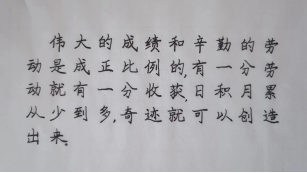 伟大的成绩和辛勤的劳
动是成正比例的,有一分劳
动就有一分收获,日积月累
从少到多,奇迹就可以创造
出来。